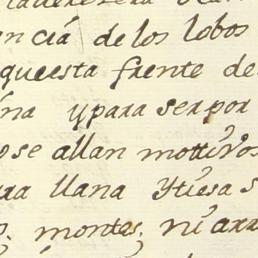 en ciá de los lobos
queesta frente de
ina ypara ser por
o se allan mottivos
ra llana ytiesa s
montes, ni arr